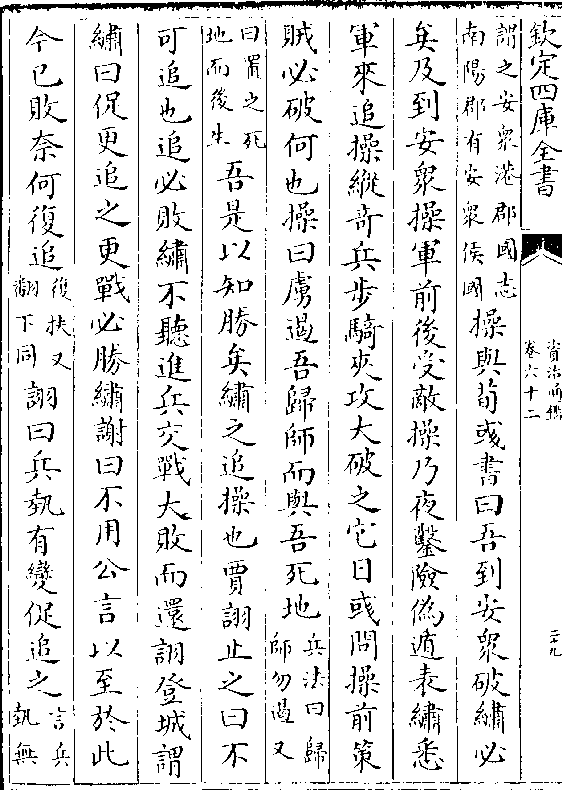 欽定四庫全書
資治通鑑
卷六十二
二十九
謂之安衆港郡國志
南陽郡有安衆侯國
操與荀彧書曰吾到安衆破繡必
矣及到安衆操軍前後受敵操乃夜鑿險偽遁表繡悉
軍來追操縱奇兵步騎夾攻大破之它日彧問操前策
賊必破何也操曰虜遏吾歸師而與吾死地
兵法曰歸
師勿遏又
曰置之死
地而後生
吾是以知勝矣繡之追操也賈詡止之曰不
可追也追必敗繡不聽進兵交戰大敗而還詡登城謂
繡曰促更追之更戰必勝繡謝曰不用公言以至於此
今已敗奈何復追
復扶又
翻下同
詡曰兵埶有變促追之
言兵
埶無